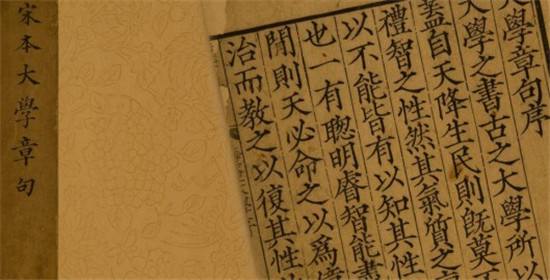 大學章句序
大學之書古之大學所
蓋自天降生民則旣莫
禮智之性然其氣質之
以不能皆有以知其性
也一有聰明睿智能盡
閒則天必命之以爲億
治而敎之以復其性
宋本大學章句